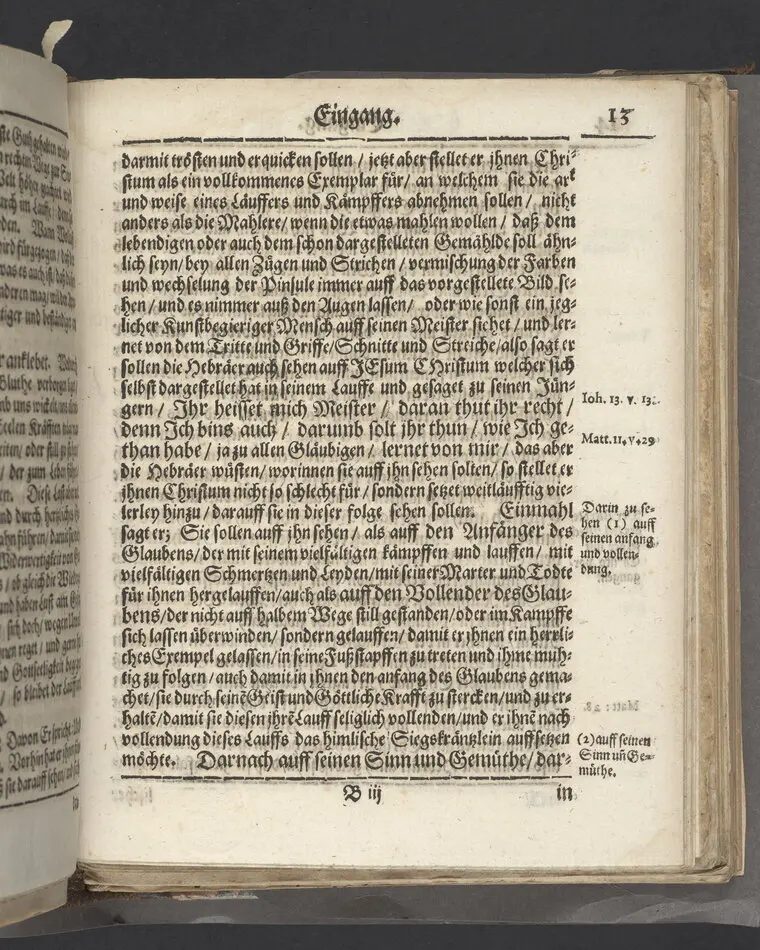 Eingang.
13
darmit trösten und erquicken sollen / jetzt aber stellet er jhnen Chri-
stum als ein vollkommenes Exemplar für / an welchem sie die art
und weise eines Läuffers und Kämpffers abnehmen sollen / nicht
anders als die Mahlere / wenn die etwas mahlen wollen / daß dem
lebendigen oder auch dem schon dargestelleten Gemählde soll ähn-
lich seyn / bey allen Zügen und Strichen / vermischung der Farben
und wechselung der Pinsule immer auff das vorgestellete Bild se-
hen / und es nimmer auß den Augen lassen / oder wie sonst ein jeg-
licher Kunstbegieriger Mensch auff seinen Meister siehet / und ler-
net von dem Tritte und Griffe / Schnitte und Streiche / also sagt er
sollen die Hebräer auch sehen auff JEsum CHristum welcher sich
selbst dargestellet hat in seinem Lauffe und gesaget zu seinen Jün-
gern / Ihr heisset mich Meister / daran thut ihr recht /
denn Ich bins auch / darumb solt jhr thun / wie Ich ge-
than habe / ja zu allen Gläubigen / lernet von mir / das aber
die Hebräer wüsten / worinnen sie auff jhn sehen solten / so stellet er
jhnen Christum nicht so schlecht für / sondern setzet weitläufftig vie-
lerley hinzu / darauff sie in dieser folge sehen sollen. Einmahl
sagt er; Sie sollen auff jhn sehen / als auff den Anfänger des
Glaubens / der mit seinem vielfältigen kämpffen und lauffen / mit
vielfältigen Schmertzen und Leyden / mit seiner Marter und Todte
für ihnen hergelauffen / auch als auff den Vollender des Glau-
bens / der nicht auff halbem Wege still gestanden / oder im Kampffe
sich lassen überwinden / sondern gelauffen / damit er jhnen ein herrli-
ches Exempel gelassen / in seine Fußstapffen zu treten und ihme muh-
tig zu folgen / auch damit in jhnen den anfang des Glaubens gema-
chet / sie durch seinē Geist und Göttliche Krafft zu stercken / und zu er-
haltē / damit sie diesen jhrē Lauff seliglich vollenden / und er ihnē nach
vollendung dieses Lauffs das himlische Siegskräntzlein auffsetzen
möchte. Darnach auff seinen Sinn und Gemüthe / dar-
B iij
in
Ioh. 13. v. 13.
Matt. 11. v. 29
Darin zu se-
hen (1) auff
seinen anfang
und vollen-
dung.
(2) auff seinen
Sinn uñ Ge-
müthe.